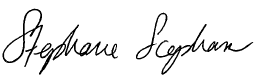 Stephane Scephan